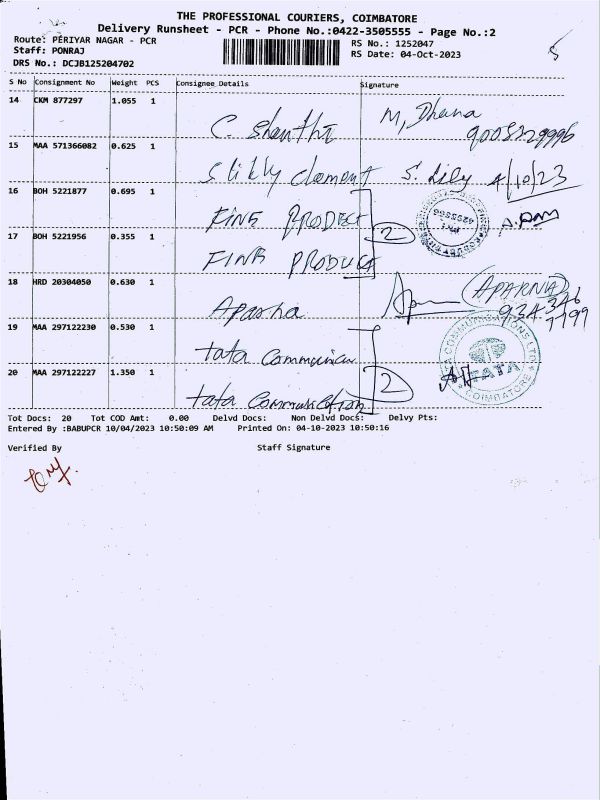 THE PROFESSIONAL COURIERS, COIMBATORE
Delivery Runsheet - PCR - Phone No.:0422-3505555 - Page No.:2
Route: PERIYAR NAGAR - PCR
RS No.: 1252047
Staff: PONRAJ
RS Date: 04-Oct-2023
DRS No.: DCJB125204702
S No Consignment No Weight PCS Consignee Details Signature
14 CKM 877297 1.055 1 C. Shanthi M, Dhana
15 MAA 571366082 0.625 1 S lilly clement S. Lily 4/10/23
16 BOH 5221877 0.695 1 FINE PRODECT
17 BOH 5221956 0.355 1 FINE PRODUCT 2
18 HRD 20304050 0.630 1 Aparna (APARNA)
19 MAA 297122230 0.530 1 tata Communica
20 MAA 297122227 1.350 1 tata Communication 2
COMMUNICATIONS LTD
TATA
COIMBATORE
Tot Docs: 20 Tot COD Amt: 0.00 Delvd Docs: Non Delvd Docs: Delvy Pts:
Entered By :BABUPCR 10/04/2023 10:50:09 AM Printed On: 04-10-2023 10:50:16
Verified By Staff Signature